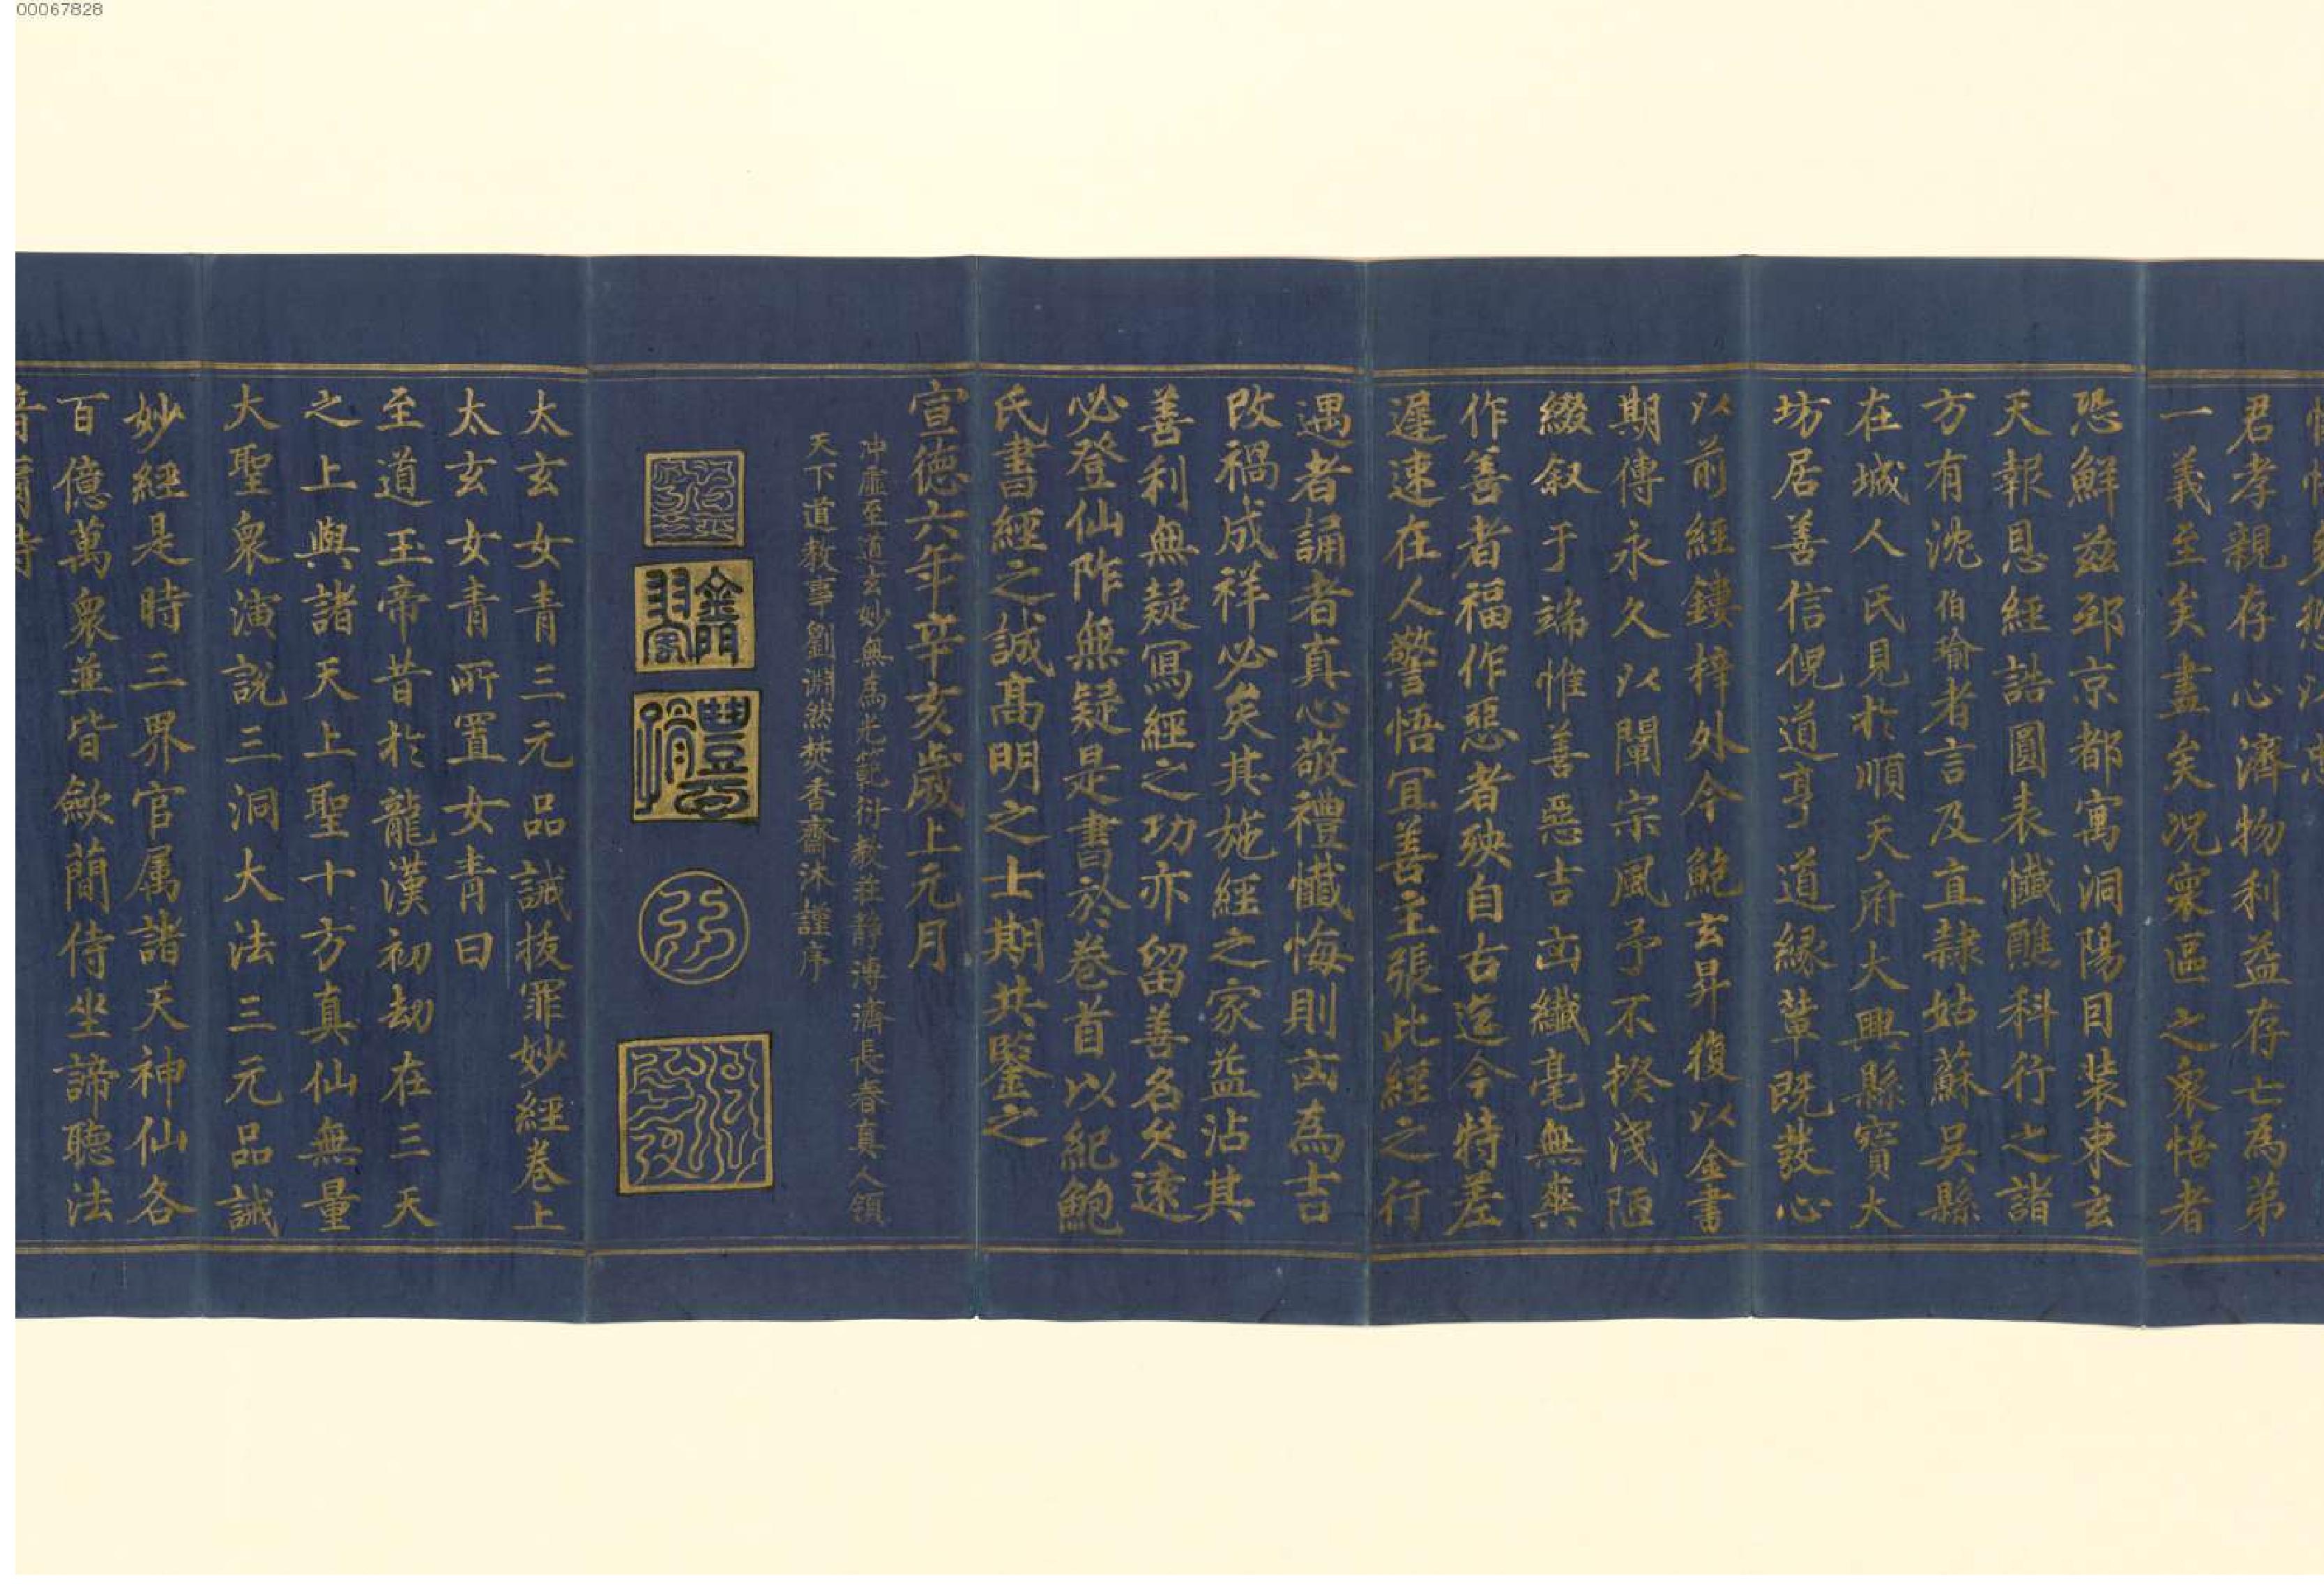 00067828
君孝親存心濟物利益存亡為弟
一義至矣盡矣况寰區之衆悟者
恐鮮兹邳京都寓洞陽目裝東玄
天報恩經誥圓表懺醮科行之諸
方有沈伯瑜者言及直隷姑蘇吳縣
在城人氏見扵順天府大興縣寶大
坊居善信倪道亨道緣輩既發心
以前經鏤梓外今鮑玄昇復以金書
期傳永久以闡宗風予不揆淺陋
綴叙于端惟善惡吉凶纖毫無爽
作善者福作惡者殃自古迄今特差
遲速在人警悟冝善主張此經之行
遇者誦者真心敬禮懺悔則凶為吉
改禍成祥必矣其施經之家益沾其
善利無疑冩經之功亦留善名久遠
必登仙阼無疑是書於卷首以紀鮑
氏書經之誠髙明之士期共鑒之
宣德六年辛亥歲上元月
沖虛至道玄妙無為光範衍教莊靜溥濟長春真人領
天下道教事劉淵然焚香齋沐謹序
太玄女青三元品誡拔罪妙經卷上
太玄女青所置女青曰
至道王帝昔扵龍漢初劫在三天
之上與諸天上聖十方真仙無量
大聖衆演說三洞大法三元品誡
妙經是時三界官属諸天神仙各
百億萬衆並皆歛簡侍坐諦聽法